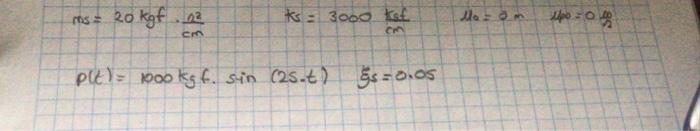 ms = 20 kgf . s²/cm ks = 3000 kgf/cm μ₀ = 0 m μp0 = 0 m/s
p(t) = 1000 kgf. sin (25.t) ξs = 0.05